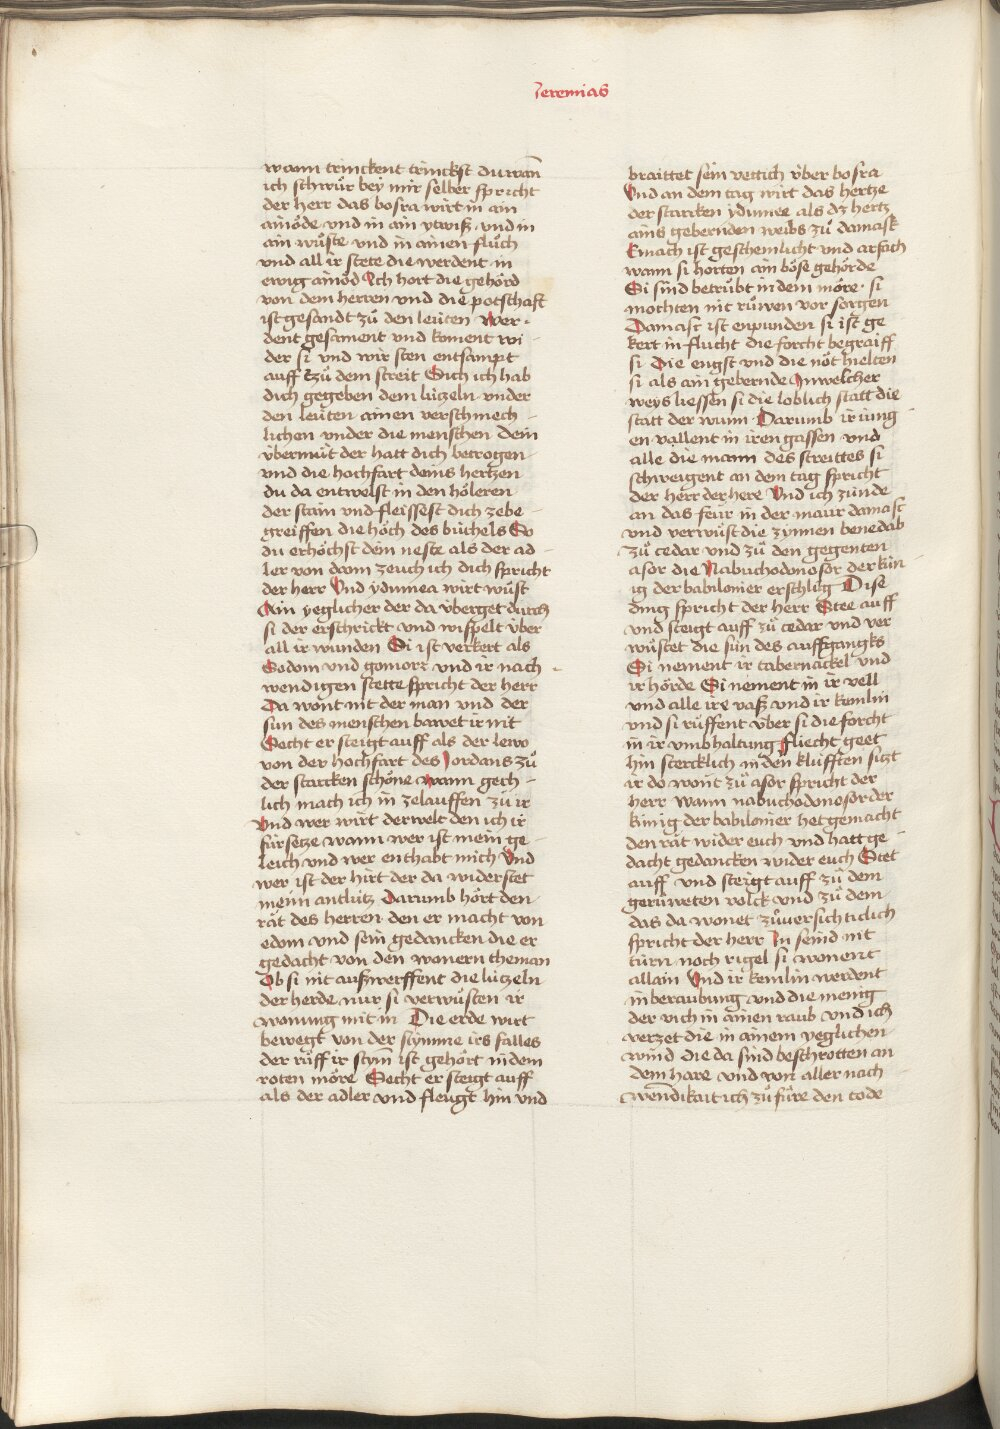 Jeremias
wann trinckent trinckst du wañ
ich schwůr bey mir selber spricht
der herr das bosra wirt in ain
ainöde vnd in ain ytwiß vnd in
ain wůste vnd in ainen flůch
vnd all ir stete die werdent in
ewig ainöd Ich hort die gehörd
von dem herren vnd die potschaft
ist gesandt zů den leüten Wer-
dent gesament vnd koment wi-
der si vnd wir sten entsampt
auff zů dem streit Sich ich hab
dich gegeben dem lützeln vnder
den leüten ainen verschmech-
lichen vnder die menschen Dein
übermůt der hatt dich betrogen
vnd die hochfart deins hertzen
du da entwelst in den höleren
der stain vnd fleissest dich zebe-
greiffen die höch des büchels So
du erhöchst dem neste als der ad-
ler von dann zeuch ich dich spricht
der herr Vnd ydumea wirt wůst
Ain yeglicher der da überget durch
si der erschrickt vnd wispelt über
all ir wunden Si ist verkert als
Sodom vnd gomorr vnd ir nach-
wendigen stette spricht der herr
Da wont nit der man vnd der
sun des menschen bawet ir nit
Secht er steigt auff als der lewo
von der hochfart des Jordans zů
der starcken schöne Wann gech-
lich mach ich in zelauffen zů ir
Vnd wer wirt derwelt den ich ir
fürsetze wann wer ist mein ge-
leich vnd wer enthabt mich Vnd
wer ist der hirt der da widerstet
meim antlitz Darumb hört den
rät des herren den er macht von
edom vnd sein gedancken die er
gedacht von den wonern theman
Ob si nit außwerffent die lützeln
der herde nur si verwůsten ir
wonung mit in Die erde wirt
bewegt von der stymme irs falles
der rüff ir stym̃ ist gehört in dem
roten möre Secht er steigt auff
als der adler vnd fleugt hin vnd
braittet sein vettich über bosra
Vnd an dem tag wirt das hertze
der starcken ydumee als dz hertz
ains gebernden weibs zů damask
Emach ist geschemlicht vnd arfach
wann si horten ain böse gehörde
Si sind betrübt in dem möre si
mochten nit růwen vor sorgen
Damasc ist enpunden si ist ge
kert in flucht die forcht begraiff
si Die engst vnd die nöt hielten
si als ain gebernde In welcher
weys liessen si die loblich statt die
statt der wunn Darumb ir iung
en vallent in iren gassen vnd
alle die mann des streittes si
schweigent an dem tag spricht
der herr der here Vnd ich zünde
an das feür in der maur damasc
vnd verwůst die zynnen benedab
zů cedar vnd zů den gegenten
asor die Nabuchodonosor der kün
ig der babilonier erschleg Dise
ding spricht der herr Stee auff
vnd steigt auff zů cedar vnd ver
wůstet die sün des auffgangks
Si nement ir tabernackel vnd
ir hörde Si nement in ir vell
vnd alle ire vaß vnd ir kemlin
vnd si rüffent über si die forcht
in ir vmbhaltung Fliecht geet
hin stercklich in den klufften sitzt
ir do wont zů asor spricht der
herr Wann nabuchodonosor der
künig der babilonier het gemacht
den rät wider euch vnd hatt ge
dacht gedancken wider euch Steet
auff vnd steigt auff zů dem
gerůweten volck vnd zů dem
das da wonet zůuersichticlich
spricht der herr In seind nit
türn noch rigel si wonent
allain Vnd ir kemlin werdent
in beraubung vnd die menig
der vich in ainen raub vnd ich
verzet die in ainem yeglichen
wind die da sind beschrotten an
dem hare vnd von aller nach
wendikait ich zůfüre den tode